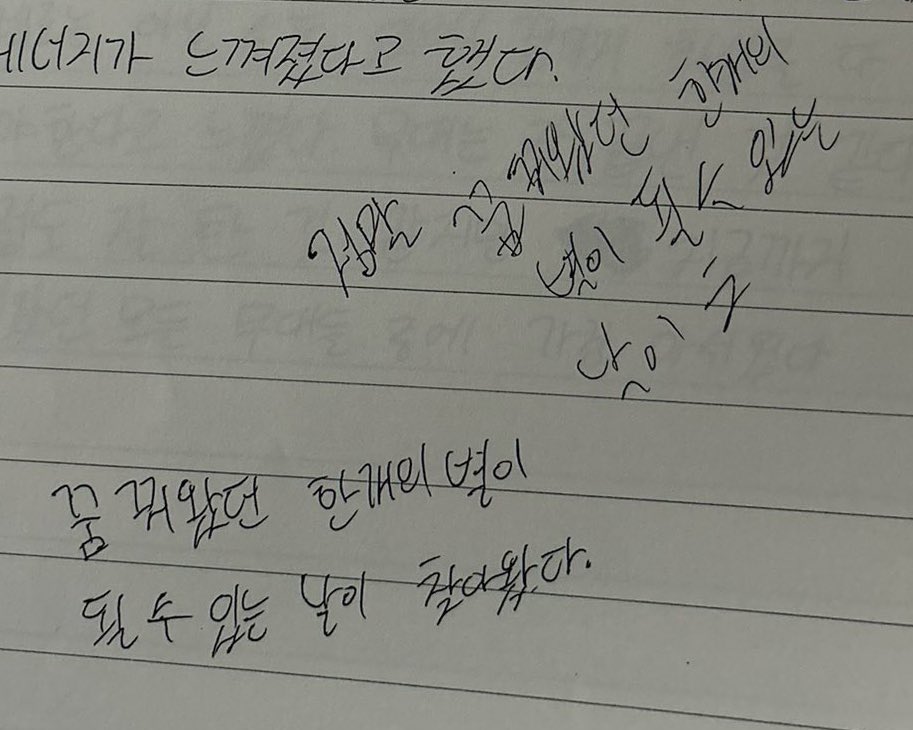 에너지가 느껴졌다고 했다.
정말 꿈 꿔왔던 한개의
별이 될 수 있는
날이
꿈 꿔왔던 한개의 별이
될 수 있는 날이 찾아왔다.